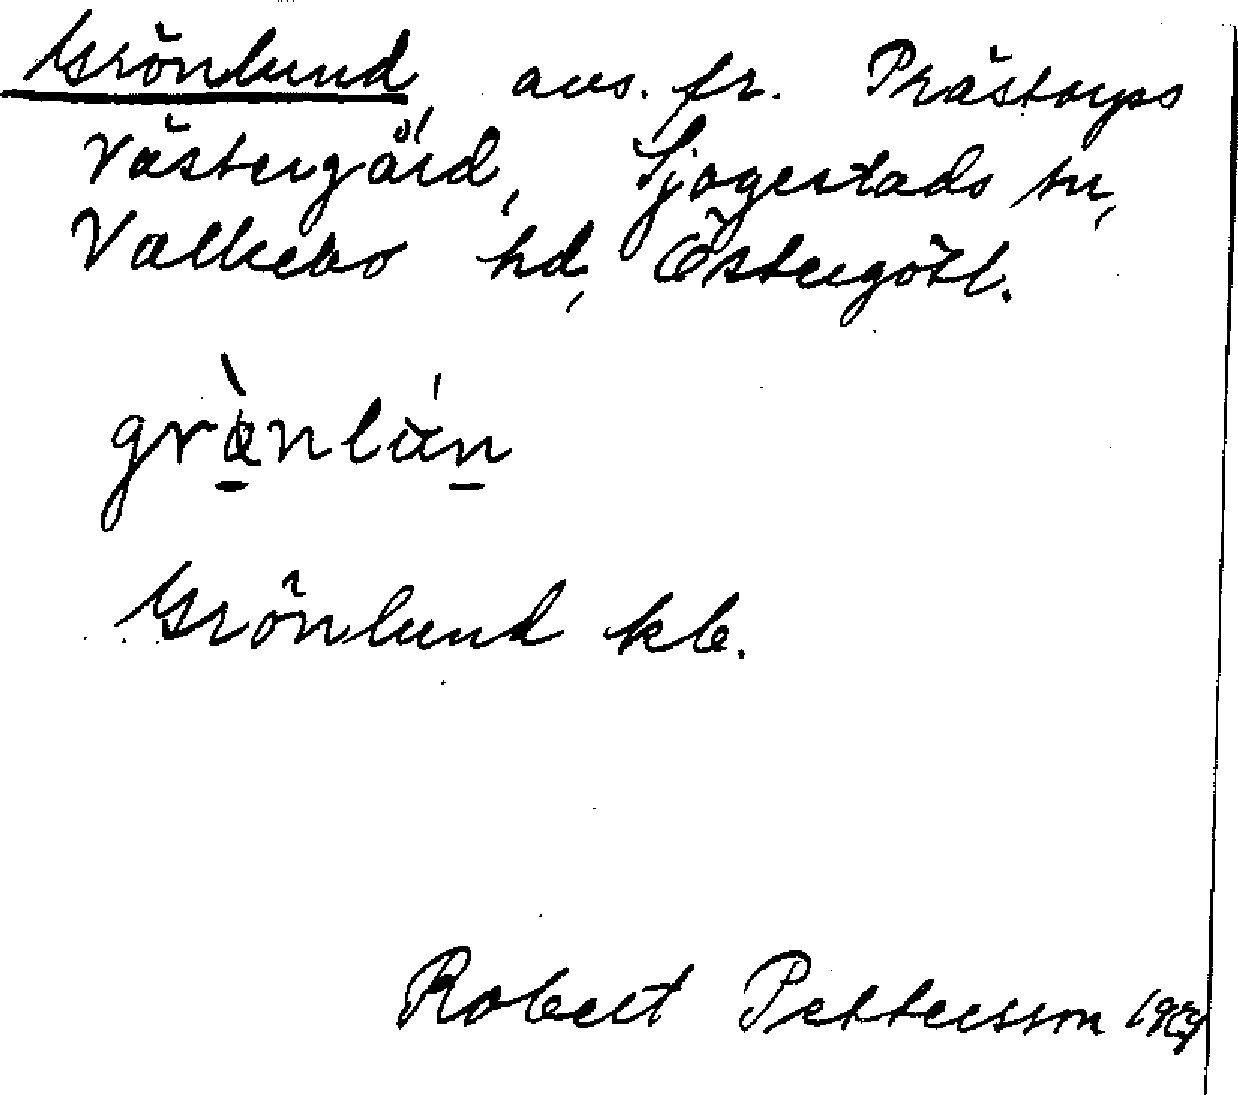 Grönlund, avs. fr. Prästorps
Västergård, Sjögestads sn,
Valkebo hd, Östergötl.
Grönlund kb.
Robert Pettersson